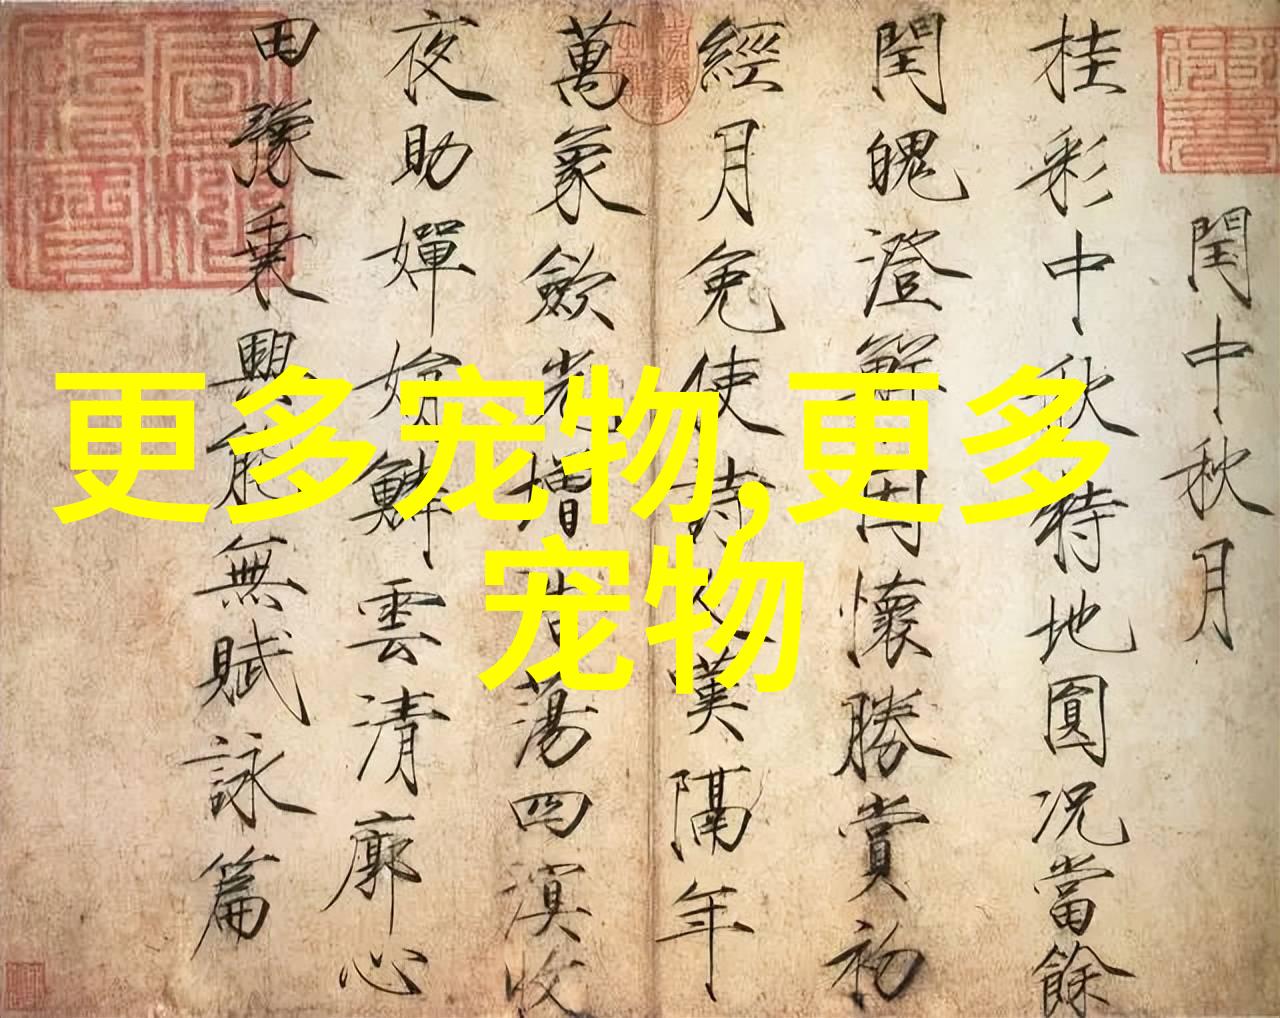 閏中秋月
桂彩中秋特地圓況當餘
閏魄澄鮮因懷勝賞初
經月免使詩人嘆隔年
萬象斂光增浩蕩四溟收
夜助嬋娟鱗雲清廓心
田豫乗興能無賦詠篇
更多宠物,更多
宠物